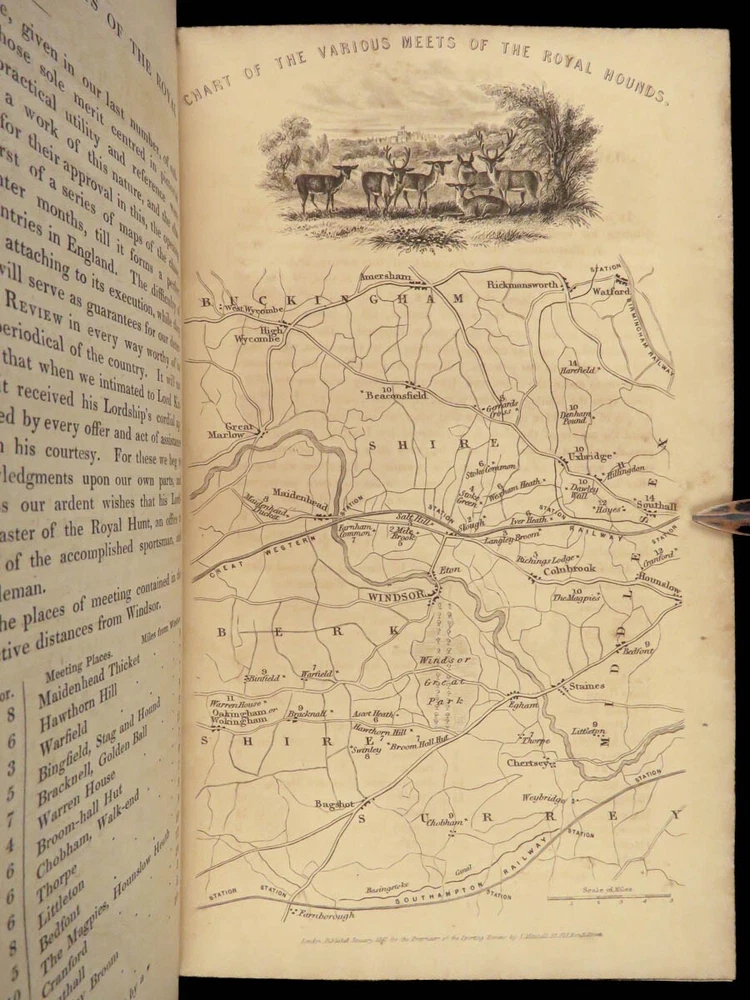 S OF THE ROYAL
e, given in our last number, of
hose sole merit centred in
practical utility and reference
a work of this nature, and the
for their approval in this, the
rst of a series of maps of the
nter months, till it forms a
ntries in England. The difficulty
attaching to its execution, while
will serve as guarantees for our
REVIEW in every way worthy of
periodical of the country. It will
that when we intimated to Lord
t received his Lordship's cordial
ed by every offer and act of assistance
h his courtesy. For these we beg
wledgments upon our own part,
s our ardent wishes that his
aster of the Royal Hunt, an
of the accomplished sportsman,
tleman.
he places of meeting contained in
tive distances from Windsor.
Meeting Places.
Miles from
8 Maidenhead Thicket
Hawthorn Hill
6 Warfield
3 Bingfield, Stag and Hound
5 Bracknell, Golden Ball
7 Warren House
4 Broom-hall Hut
6 Chobham, Walk-end
6 Thorpe
6 Littleton
8 Bedfont
5 The Magpies, Hounslow Heath
Cranford
Broom
CHART OF THE VARIOUS MEETS OF THE ROYAL HOUNDS.
Amersham
Rickmansworth
STATION
Watford
BUCKINGHAM
BIRMINGHAM RAILWAY
West Wycombe
High
Wycombe
14
Harefield
10
Beaconsfield
8
Gerrards
Cross
10
Denham
Pound
Great
Marlow
SHIRE
Uxbridge
6
Stoke Common
11
Hillingdon
10
Dawley
Wall
4
Stoke
Green
Wexham Heath
12
Hayes
14
Southall
8
Maidenhead
Thicket
Maidenhead
STATION
Salt Hill
STATION
2
Slough
STATION
Iver Heath
Farnham
Common
7
2 Mile
Brook
6
Langley Broom
RAILWAY
GREAT WESTERN
Richings Lodge
12
Cranford
Eton
Colnbrook
Hounslow
WINDSOR
10
The Magpies
MIDDLESEX
BERK
9
Bedfont
9
Binfield
7
Warfield
Windsor
Great
Park
Staines
11
Warren House
Oakingham or
Wokingham
9
Bracknall
Ascot Heath
6
Egham
Hawthorn Hill
7
9
Littleton
SHIRE
Swinley
8
Broom Hall Hut
7
Thorpe
Chertsey
STATION
Bagshot
Weybridge
SURREY
Chobham
STATION
Basingstoke
Canal
STATION
STATION
SOUTHAMPTON RAILWAY
STATION
Farnborough
Scale of Miles